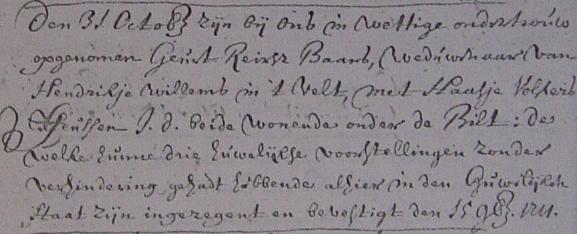 Den 31 Octobr zijn bij ons in wettige ondertrouw
opgenomen Geurt Reijersz Baars, Weduwenaar van
Hendrikje Willems in 't Velt, met Haasje Volkers
Theunissen J. d. beide wonende onder de Bilt: de
welke hunne drie huwelijkse voorstellingen zonder
verhindering gehadt hebbende alhier in den Huwelijken
staat zijn ingezegent en bevestigt den 15 9br. 1711.